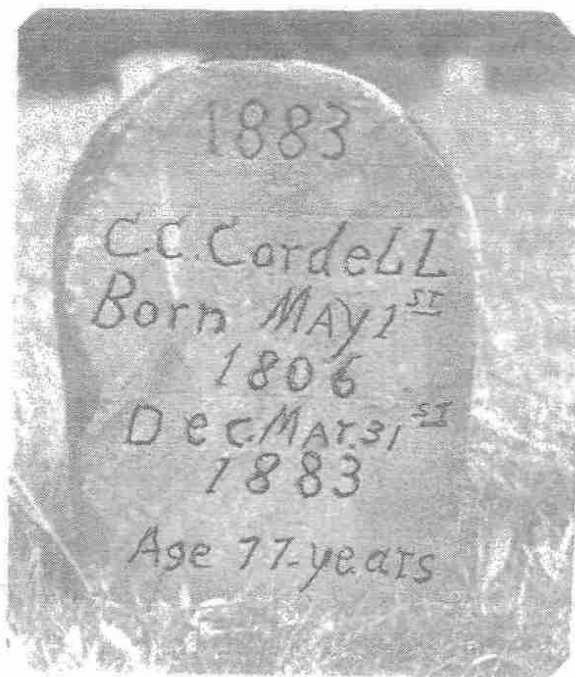 1883
C.C. CordeLL
Born MAy 1ST
1806
Dec. MAr. 31ST
1883
Age 77 years